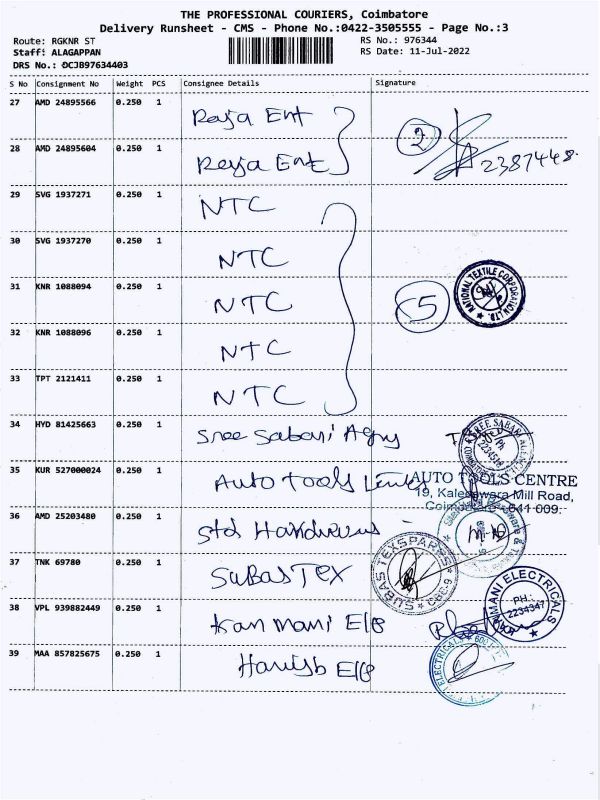 THE PROFESSIONAL COURIERS, Coimbatore
Delivery Runsheet - CMS - Phone No.:0422-3505555 - Page No.:3
Route: RGKNR ST
RS No.: 976344
Staff: ALAGAPPAN
RS Date: 11-Jul-2022
DRS No.: DCJB97634403
S No Consignment No Weight PCS Consignee Details Signature
27 AMD 24895566 0.250 1 Raja Ent
28 AMD 24895604 0.250 1 Raja Ent 2 2387448.
29 SVG 1937271 0.250 1 NTC
30 SVG 1937270 0.250 1 NTC
31 KNR 1088094 0.250 1 NTC 5 NATIONAL TEXTILE CORPORATION LTD.
32 KNR 1088096 0.250 1 NTC
33 TPT 2121411 0.250 1 NTC
34 HYD 81425663 0.250 1 Sree Sabari Agny
35 KUR 527000024 0.250 1 Auto Tools
AUTO TOOLS CENTRE
19, Mill Road,
Coimbatore - 641 009.
36 AMD 25203480 0.250 1 Std
37 TNK 69780 0.250 1 SUBAS TEX SUBAS TEXSPARSS
38 VPL 939882449 0.250 1 Kan mani Ele MANI ELECTRICALS PH: 2234347
39 MAA 857825675 0.250 1 Harish Ele ELECTRICALS